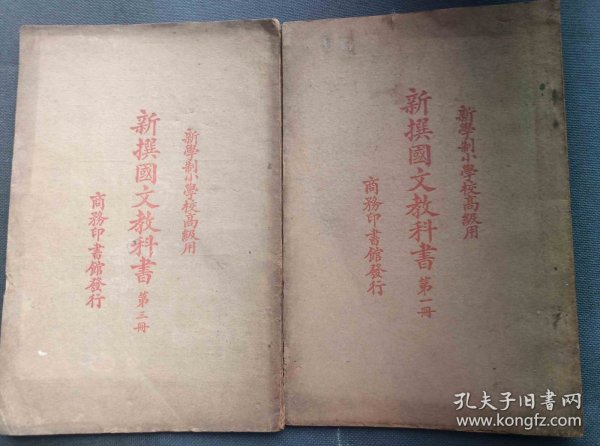 新學制小學校高級用
新撰國文教科書 第一冊
商務印書館發行
新學制小學校高級用
新撰國文教科書 第三冊
商務印書館發行
孔夫子旧书网
www.kongfz.com